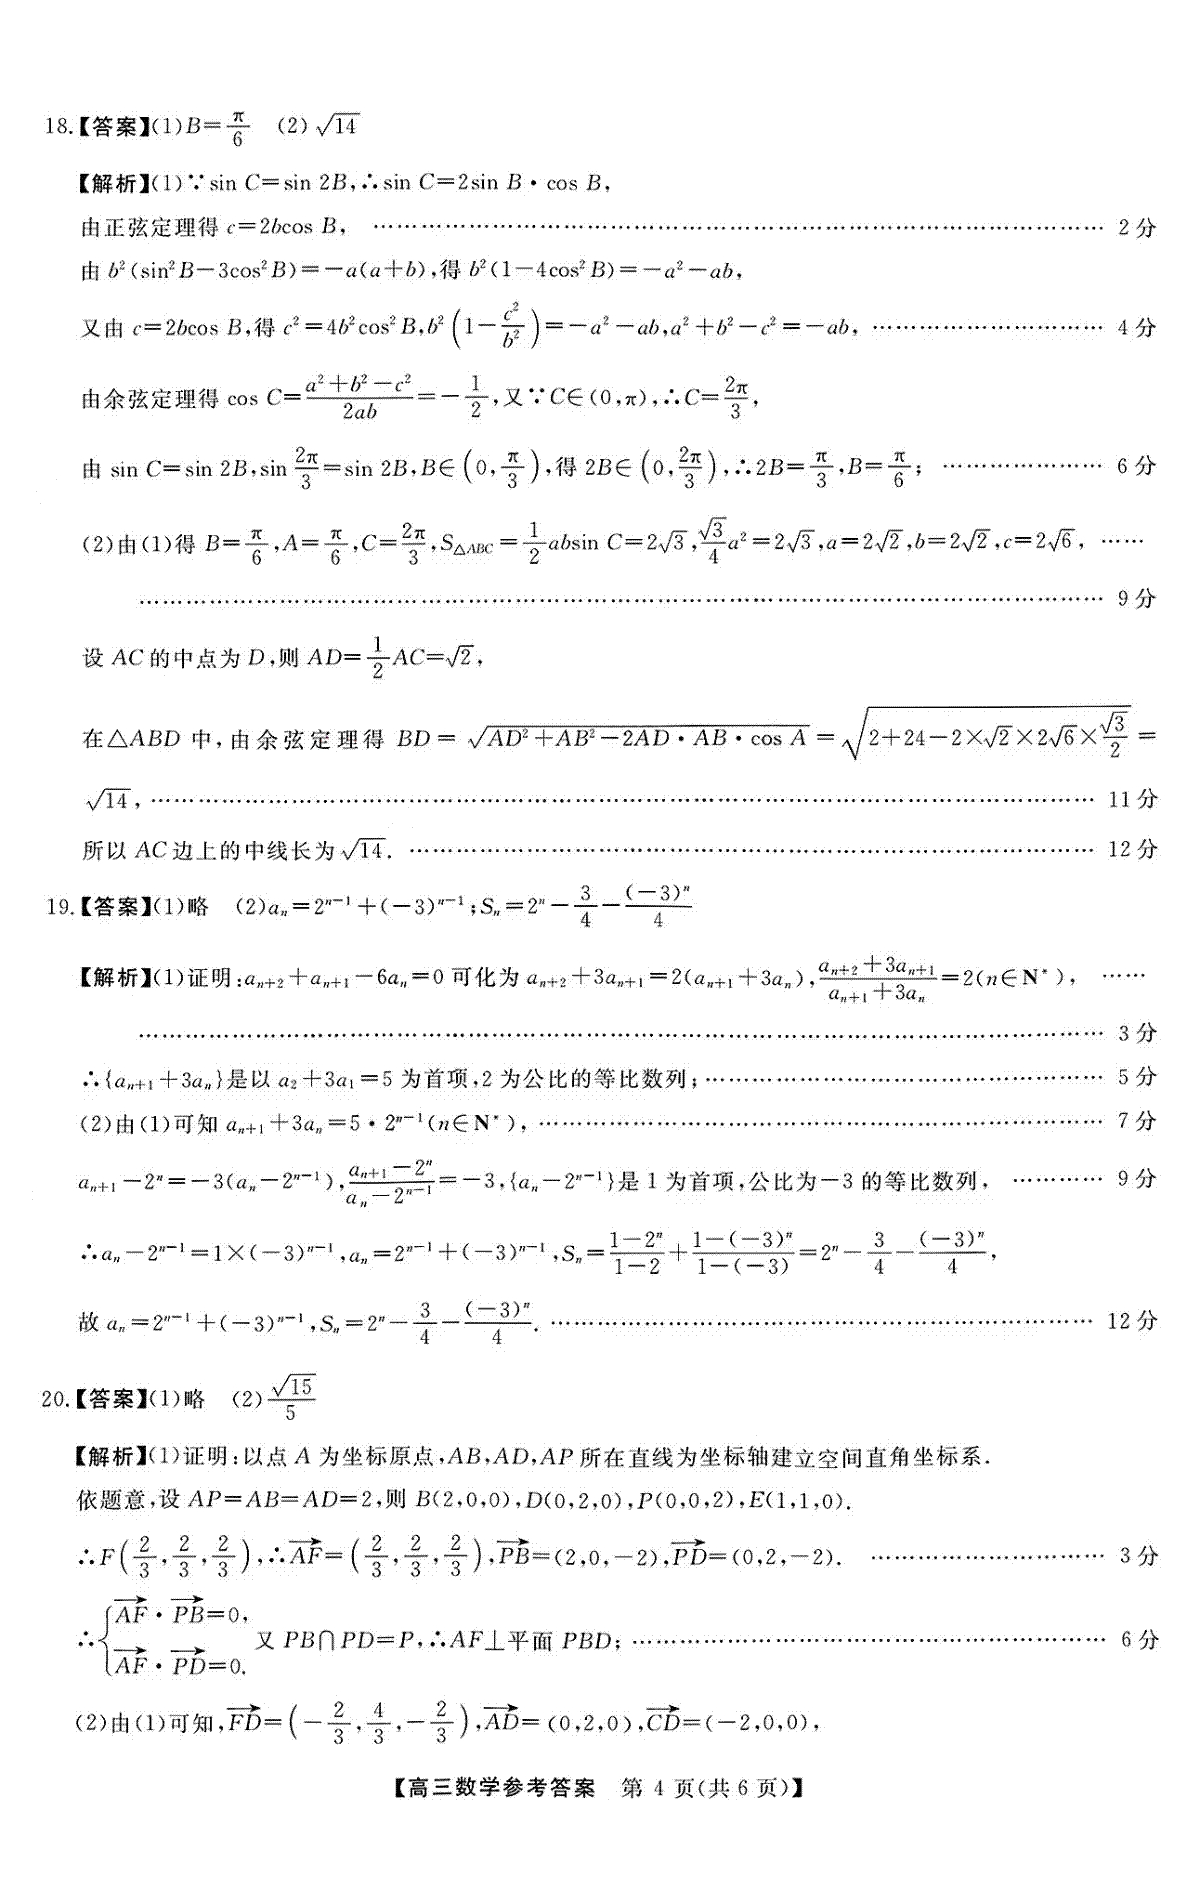 18.【答案】(1)B=π/6 (2)√14
【解析】(1)∵sin C=sin 2B,∴sin C=2sin B·cos B,
由正弦定理得 c=2bcos B, …… 2分
由 b²(sin²B-3cos²B)=-a(a+b),得 b²(1-4cos²B)=-a²-ab,
又由 c=2bcos B,得 c²=4b²cos²B,b²(1-c²/b²)=-a²-ab,a²+b²-c²=-ab, …… 4分
由余弦定理得 cos C=(a²+b²-c²)/2ab=-1/2,又∵C∈(0,π),∴C=2π/3,
由 sin C=sin 2B,sin 2π/3=sin 2B,B∈(0,π/3),得 2B∈(0,2π/3),∴2B=π/3,B=π/6; …… 6分
(2)由(1)得 B=π/6,A=π/6,C=2π/3,S△ABC=1/2absin C=2√3,√3/4a²=2√3,a=2√2,b=2√2,c=2√6, ……
…… 9分
设 AC 的中点为 D,则 AD=1/2AC=√2,
在△ABD 中,由余弦定理得 BD=√(AD²+AB²-2AD·AB·cos A)=√(2+24-2×√2×2√6×√3/2)=
√14, …… 11分
所以 AC 边上的中线长为√14. …… 12分
19.【答案】(1)略 (2)aₙ=2ⁿ⁻¹+(-3)ⁿ⁻¹;Sₙ=2ⁿ-3/4-(-3)ⁿ/4
【解析】(1)证明:aₙ₊₂+aₙ₊₁-6aₙ=0 可化为 aₙ₊₂+3aₙ₊₁=2(aₙ₊₁+3aₙ),(aₙ₊₂+3aₙ₊₁)/(aₙ₊₁+3aₙ)=2(n∈N*), ……
…… 3分
∴{aₙ₊₁+3aₙ}是以 a₂+3a₁=5 为首项,2 为公比的等比数列; …… 5分
(2)由(1)可知 aₙ₊₁+3aₙ=5·2ⁿ⁻¹(n∈N*), …… 7分
aₙ₊₁-2ⁿ=-3(aₙ-2ⁿ⁻¹),(aₙ₊₁-2ⁿ)/(aₙ-2ⁿ⁻¹)=-3,{aₙ-2ⁿ⁻¹}是 1 为首项,公比为-3 的等比数列, …… 9分
∴aₙ-2ⁿ⁻¹=1×(-3)ⁿ⁻¹,aₙ=2ⁿ⁻¹+(-3)ⁿ⁻¹,Sₙ=(1-2ⁿ)/(1-2)+(1-(-3)ⁿ)/(1-(-3))=2ⁿ-3/4-(-3)ⁿ/4,
故 aₙ=2ⁿ⁻¹+(-3)ⁿ⁻¹,Sₙ=2ⁿ-3/4-(-3)ⁿ/4. …… 12分
20.【答案】(1)略 (2)√15/5
【解析】(1)证明:以点 A 为坐标原点,AB,AD,AP 所在直线为坐标轴建立空间直角坐标系.
依题意,设 AP=AB=AD=2,则 B(2,0,0),D(0,2,0),P(0,0,2),E(1,1,0).
∴F(2/3,2/3,2/3),∴AF→=(2/3,2/3,2/3),PB→=(2,0,-2),PD→=(0,2,-2). …… 3分
∴{AF→·PB→=0, AF→·PD→=0. 又 PB∩PD=P,∴AF⊥平面 PBD; …… 6分
(2)由(1)可知,FD→=(-2/3,4/3,-2/3),AD→=(0,2,0),CD→=(-2,0,0),
【高三数学参考答案 第 4 页(共 6 页)】